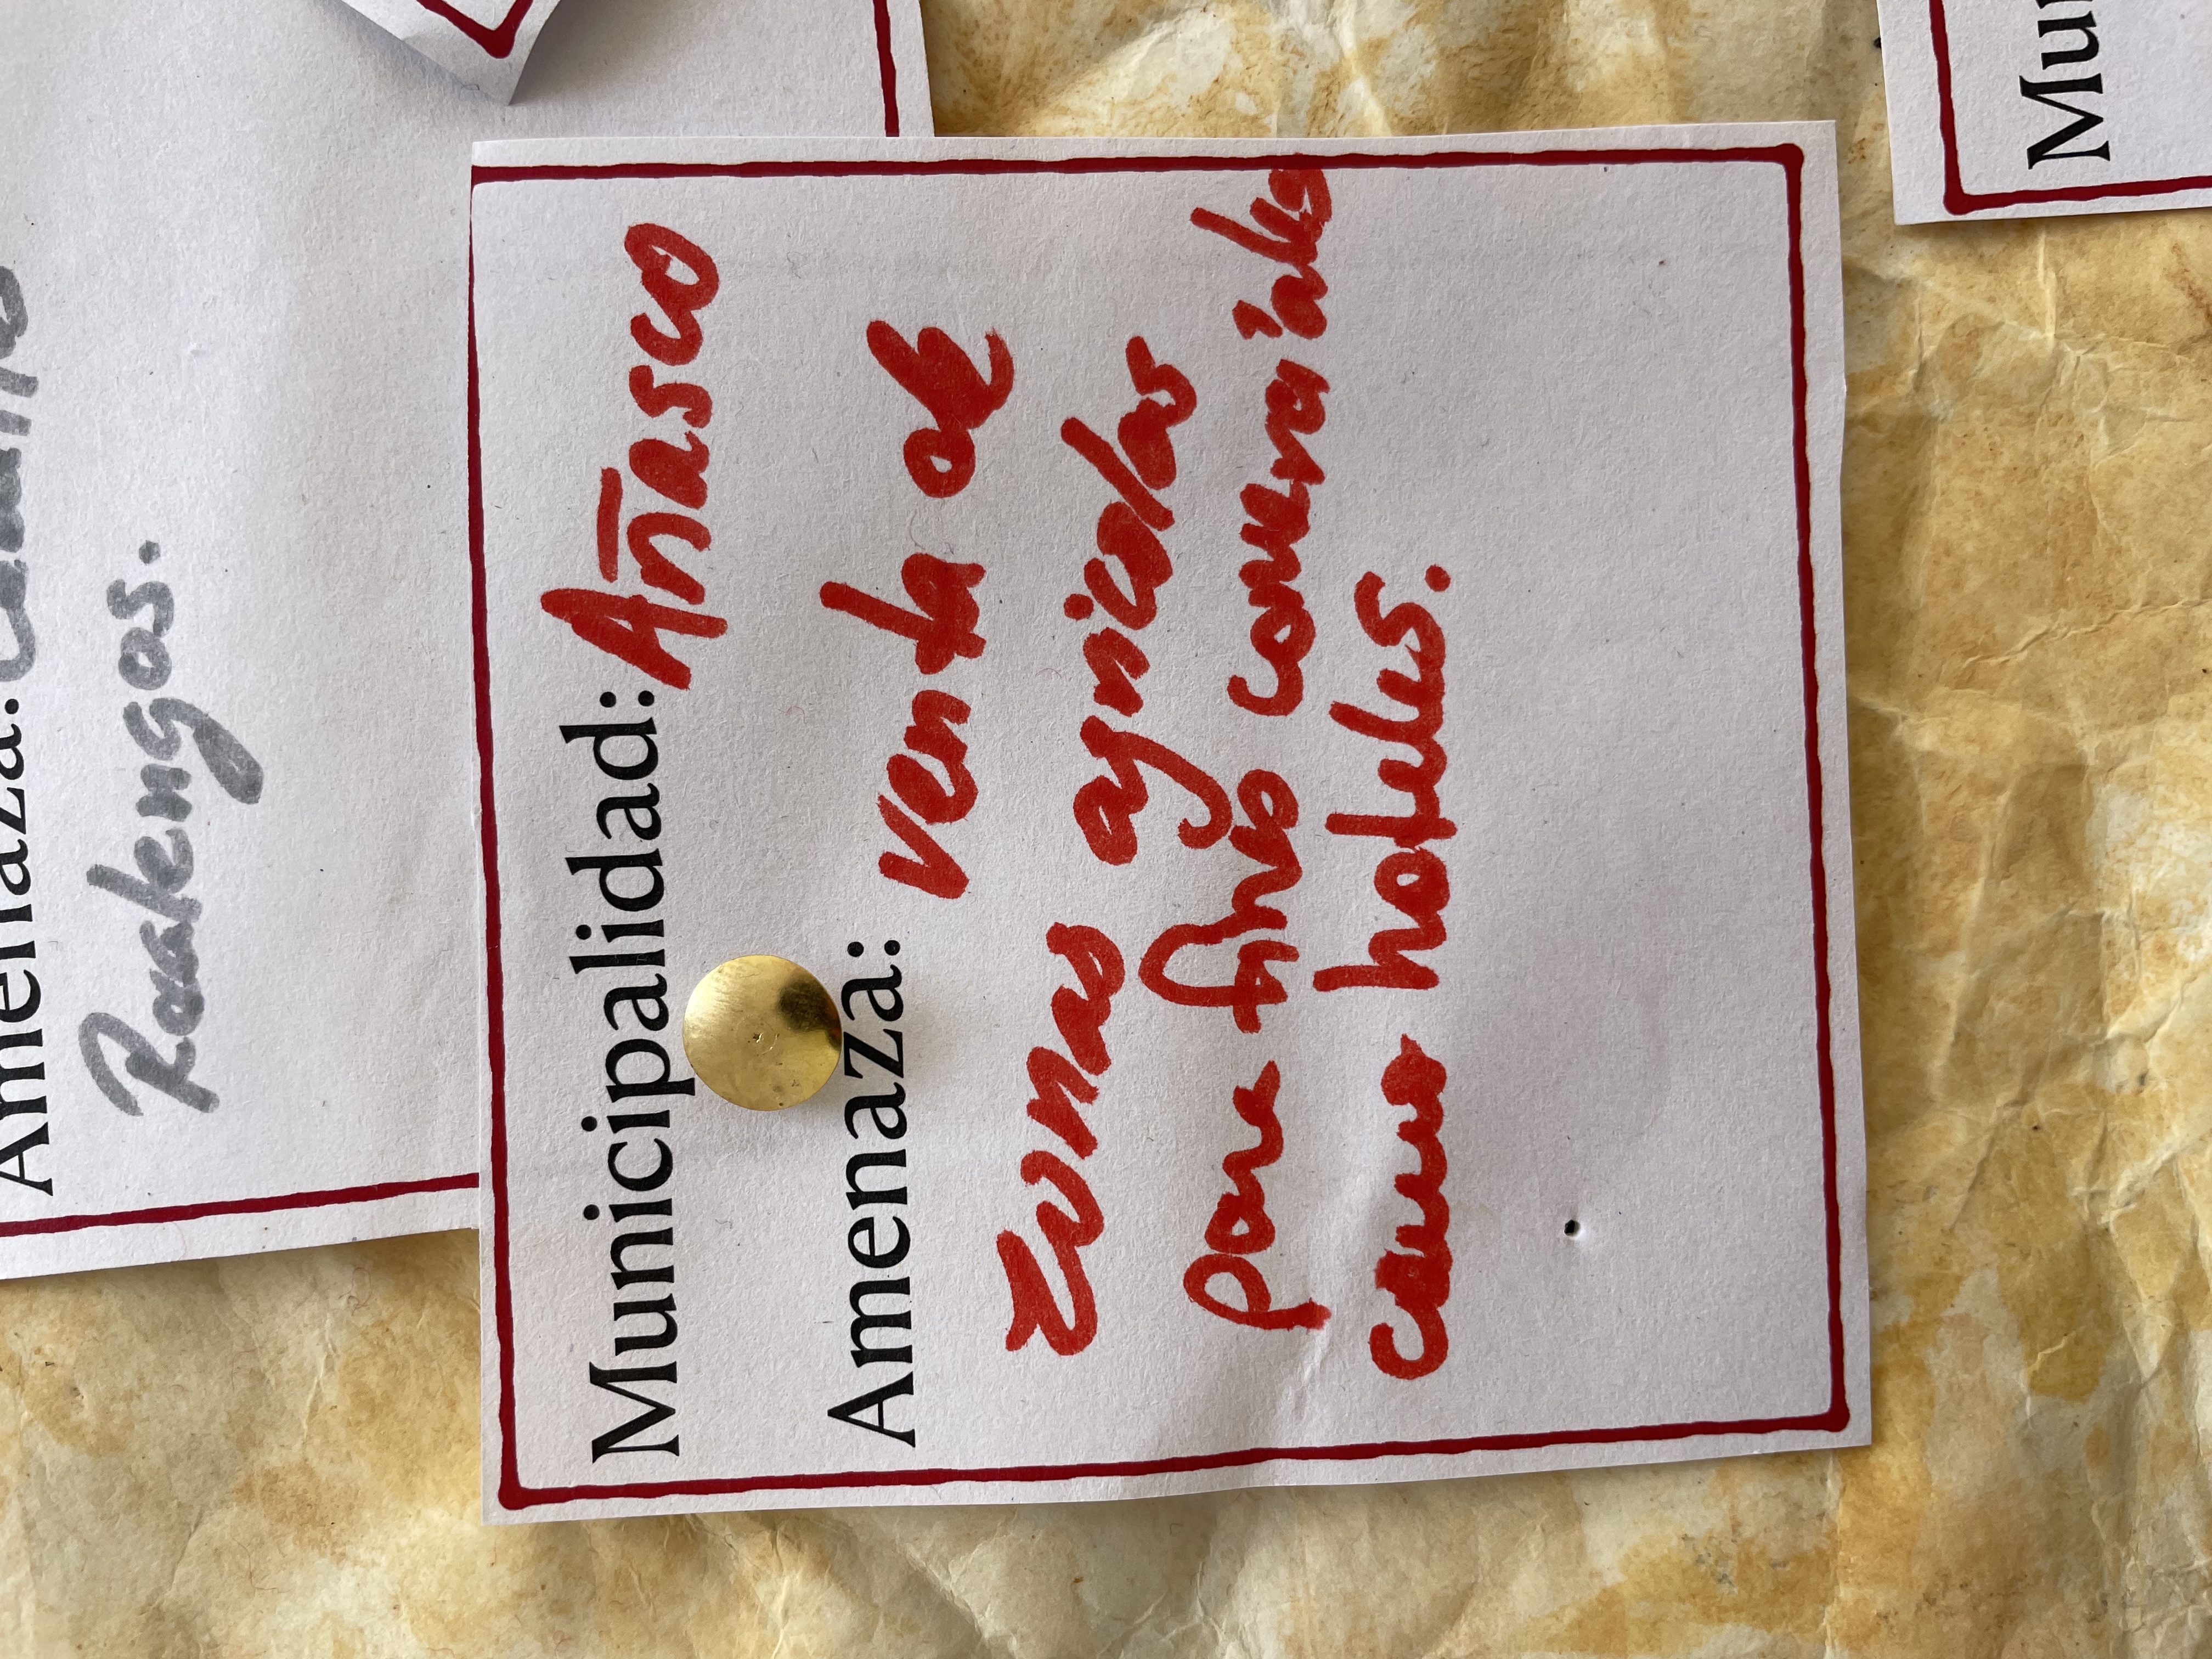 Amenaza:
Realengos.
Municipalidad: Añasco
Amenaza: venta de
Zonas agricolas
para fines comerciales
como hoteles.
Mu